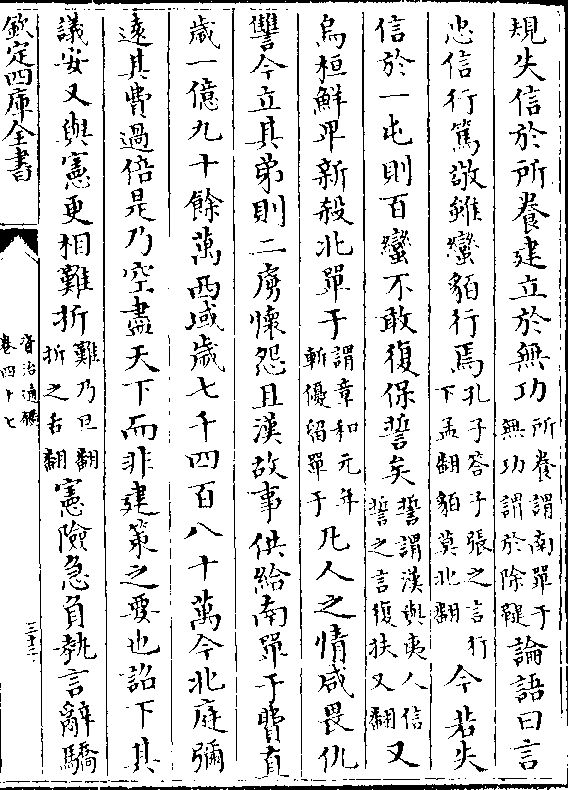 規失信於所養建立於無功所養謂南單于無功謂於除鞬論語曰言
忠信行篤敬雖蠻貊行焉孔子答子張之言行下孟翻貊莫北翻今若失
信於一屯則百蠻不敢復保誓矣誓謂漢與夷人信誓之言復扶又翻又
烏桓鮮卑新殺北單于謂章和元年斬優留單于凡人之情咸畏仇
讐今立其弟則二虜懷怨且漢故事供給南單于費直
歲一億九十餘萬西域歲七千四百八十萬今北庭彌
遠其費過倍是乃空盡天下而非建策之要也詔下其
議安又與憲更相難折難乃旦翻折之舌翻憲險急負埶言辭驕
欽定四庫全書
資治通鑑
卷四十七
三十二